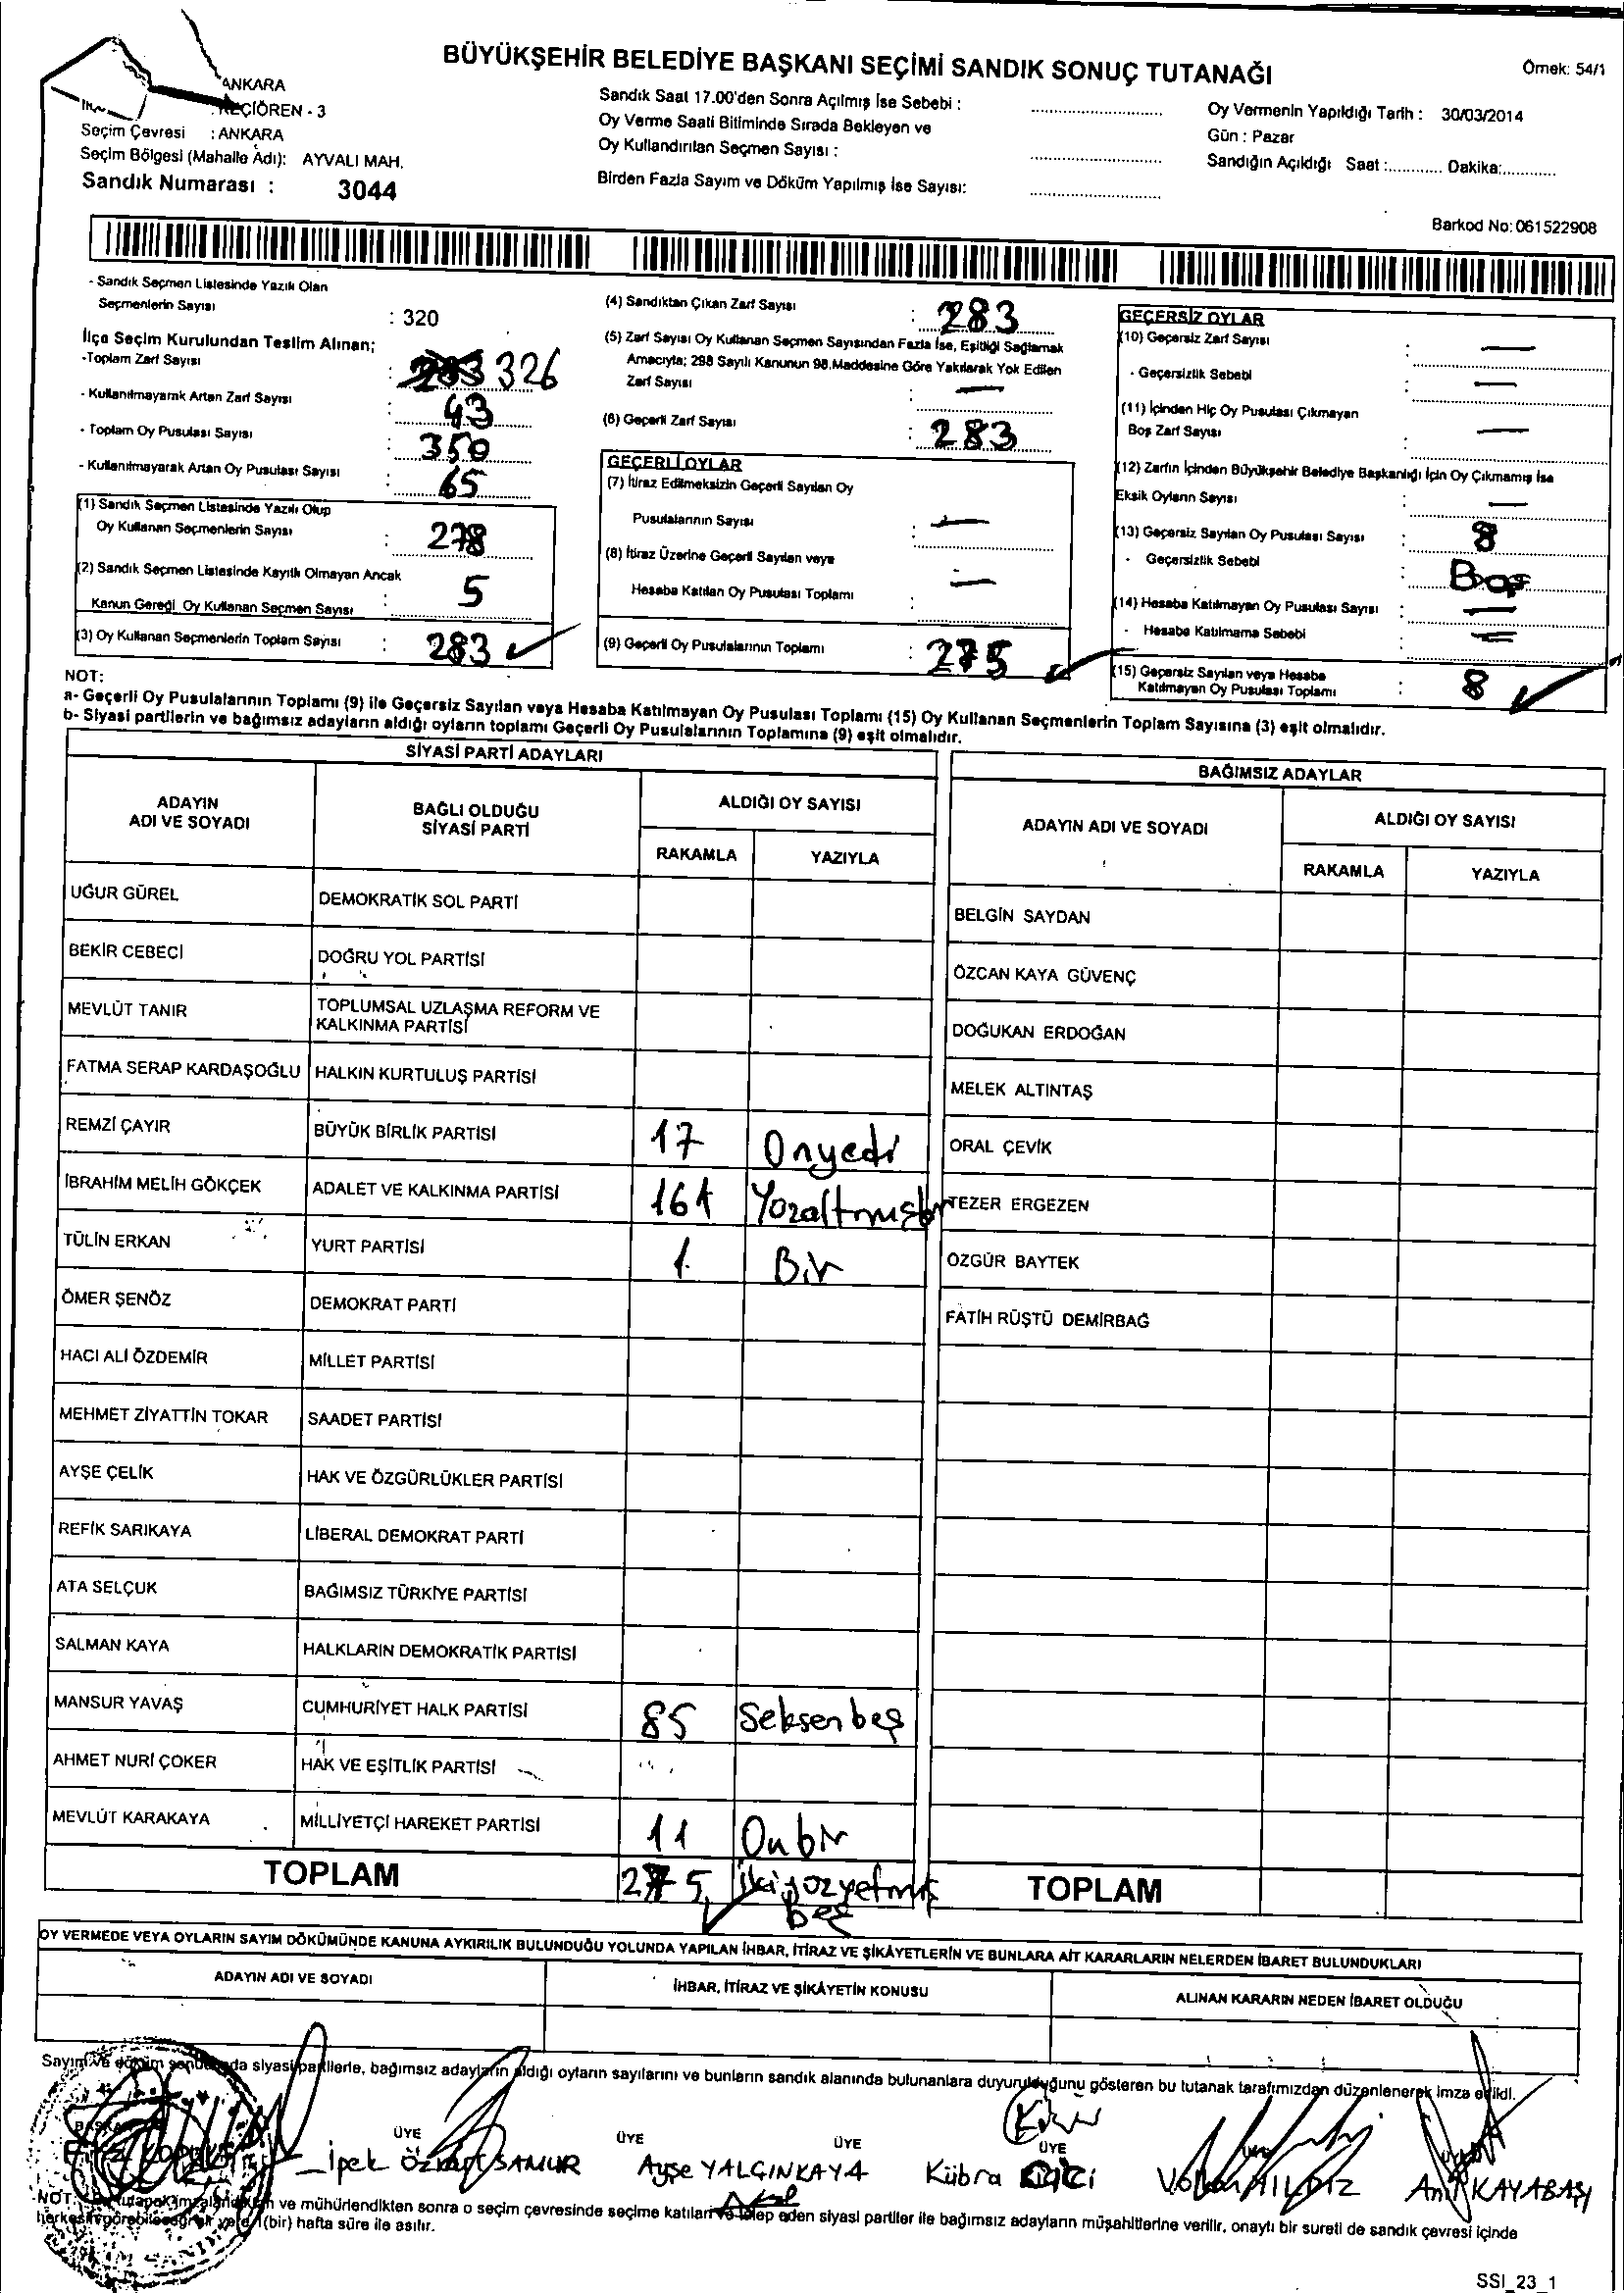 BÜYÜKŞEHİR BELEDİYE BAŞKANI SEÇİMİ SANDIK SONUÇ TUTANAĞI
Örnek: 54/1
ANKARA
KEÇİÖREN - 3
Seçim Çevresi : ANKARA
Seçim Bölgesi (Mahalle Adı): AYVALI MAH.
Sandık Numarası : 3044
Sandık Saat 17.00'den Sonra Açılmış İse Sebebi :
Oy Verme Saati Bitiminde Sırada Bekleyen ve
Oy Kullandırılan Seçmen Sayısı :
Birden Fazla Sayım ve Döküm Yapılmış İse Sayısı:
Oy Vermenin Yapıldığı Tarih : 30/03/2014
Gün : Pazar
Sandığın Açıldığı Saat :............ Dakika:............
Barkod No: 061522908
- Sandık Seçmen Listesinde Yazılı Olan
Seçmenlerin Sayısı : 320
İlçe Seçim Kurulundan Teslim Alınan;
-Toplam Zarf Sayısı : 326
- Kullanılmayarak Artan Zarf Sayısı : 43
- Toplam Oy Pusulası Sayısı : 350
- Kullanılmayarak Artan Oy Pusulası Sayısı : 65
(1) Sandık Seçmen Listesinde Yazılı Olup
Oy Kullanan Seçmenlerin Sayısı : 278
(2) Sandık Seçmen Listesinde Kayıtlı Olmayan Ancak
Kanun Gereği Oy Kullanan Seçmen Sayısı : 5
(3) Oy Kullanan Seçmenlerin Toplam Sayısı : 283
(4) Sandıktan Çıkan Zarf Sayısı : 283
(5) Zarf Sayısı Oy Kullanan Seçmen Sayısından Fazla İse, Eşitliği Sağlamak
Amacıyla; 298 Sayılı Kanunun 98.Maddesine Göre Yakılarak Yok Edilen
Zarf Sayısı : —
(6) Geçerli Zarf Sayısı : 283
GEÇERLİ OYLAR
(7) İtiraz Edilmeksizin Geçerli Sayılan Oy
Pusulalarının Sayısı : —
(8) İtiraz Üzerine Geçerli Sayılan veya
Hesaba Katılan Oy Pusulası Toplamı : —
(9) Geçerli Oy Pusulalarının Toplamı : 275
GEÇERSİZ OYLAR
(10) Geçersiz Zarf Sayısı : —
- Geçersizlik Sebebi : —
(11) İçinden Hiç Oy Pusulası Çıkmayan
Boş Zarf Sayısı : —
(12) Zarfın İçinden Büyükşehir Belediye Başkanlığı İçin Oy Çıkmamış İse
Eksik Oyların Sayısı : —
(13) Geçersiz Sayılan Oy Pusulası Sayısı : 8
- Geçersizlik Sebebi : Boş
(14) Hesaba Katılmayan Oy Pusulası Sayısı : —
- Hesaba Katılmama Sebebi : —
(15) Geçersiz Sayılan veya Hesaba
Katılmayan Oy Pusulası Toplamı : 8
NOT:
a- Geçerli Oy Pusulalarının Toplamı (9) ile Geçersiz Sayılan veya Hesaba Katılmayan Oy Pusulası Toplamı (15) Oy Kullanan Seçmenlerin Toplam Sayısına (3) eşit olmalıdır.
b- Siyasi partilerin ve bağımsız adayların aldığı oyların toplamı Geçerli Oy Pusulalarının Toplamına (9) eşit olmalıdır.
SİYASİ PARTİ ADAYLARI
ADAYIN ADI VE SOYADI
BAĞLI OLDUĞU SİYASİ PARTİ
ALDIĞI OY SAYISI
RAKAMLA YAZIYLA
UĞUR GÜREL DEMOKRATİK SOL PARTİ
BEKİR CEBECİ DOĞRU YOL PARTİSİ
MEVLÜT TANIR TOPLUMSAL UZLAŞMA REFORM VE
KALKINMA PARTİSİ
FATMA SERAP KARDAŞOĞLU HALKIN KURTULUŞ PARTİSİ
REMZİ ÇAYIR BÜYÜK BİRLİK PARTİSİ 17 Onyedi
İBRAHİM MELİH GÖKÇEK ADALET VE KALKINMA PARTİSİ 161 Yüzaltmışbir
TÜLİN ERKAN YURT PARTİSİ 1 Bir
ÖMER ŞENÖZ DEMOKRAT PARTİ
HACI ALİ ÖZDEMİR MİLLET PARTİSİ
MEHMET ZİYATTİN TOKAR SAADET PARTİSİ
AYŞE ÇELİK HAK VE ÖZGÜRLÜKLER PARTİSİ
REFİK SARIKAYA LİBERAL DEMOKRAT PARTİ
ATA SELÇUK BAĞIMSIZ TÜRKİYE PARTİSİ
SALMAN KAYA HALKLARIN DEMOKRATİK PARTİSİ
MANSUR YAVAŞ CUMHURİYET HALK PARTİSİ 85 Seksenbeş
AHMET NURİ ÇOKER HAK VE EŞİTLİK PARTİSİ
MEVLÜT KARAKAYA MİLLİYETÇİ HAREKET PARTİSİ 11 Onbir
TOPLAM 275 İkiyüzyetmiş
beş
BAĞIMSIZ ADAYLAR
ADAYIN ADI VE SOYADI
ALDIĞI OY SAYISI
RAKAMLA YAZIYLA
BELGİN SAYDAN
ÖZCAN KAYA GÜVENÇ
DOĞUKAN ERDOĞAN
MELEK ALTINTAŞ
ORAL ÇEVİK
TEZER ERGEZEN
ÖZGÜR BAYTEK
FATİH RÜŞTÜ DEMİRBAĞ
TOPLAM
OY VERMEDE VEYA OYLARIN SAYIM DÖKÜMÜNDE KANUNA AYKIRILIK BULUNDUĞU YOLUNDA YAPILAN İHBAR, İTİRAZ VE ŞİKÂYETLERİN VE BUNLARA AİT KARARLARIN NELERDEN İBARET BULUNDUKLARI
ADAYIN ADI VE SOYADI
İHBAR, İTİRAZ VE ŞİKÂYETİN KONUSU
ALINAN KARARIN NEDEN İBARET OLDUĞU
Sayım ve döküm sonucunda siyasi partilerle, bağımsız adayların aldığı oyların sayılarını ve bunların sandık alanında bulunanlara duyurulduğunu gösteren bu tutanak tarafımızdan düzenlenerek imza edildi.
ÜYE ÜYE ÜYE ÜYE
İpek SANUR Ayşe YALÇINKAYA Kübra KAYABAŞI
NOT: ve mühürlendikten sonra o seçim çevresinde seçime katılan ve talep eden siyasi partiler ile bağımsız adayların müşahitlerine verilir, onaylı bir sureti de sandık çevresi içinde
1(bir) hafta süre ile asılır.
SSI_23_1